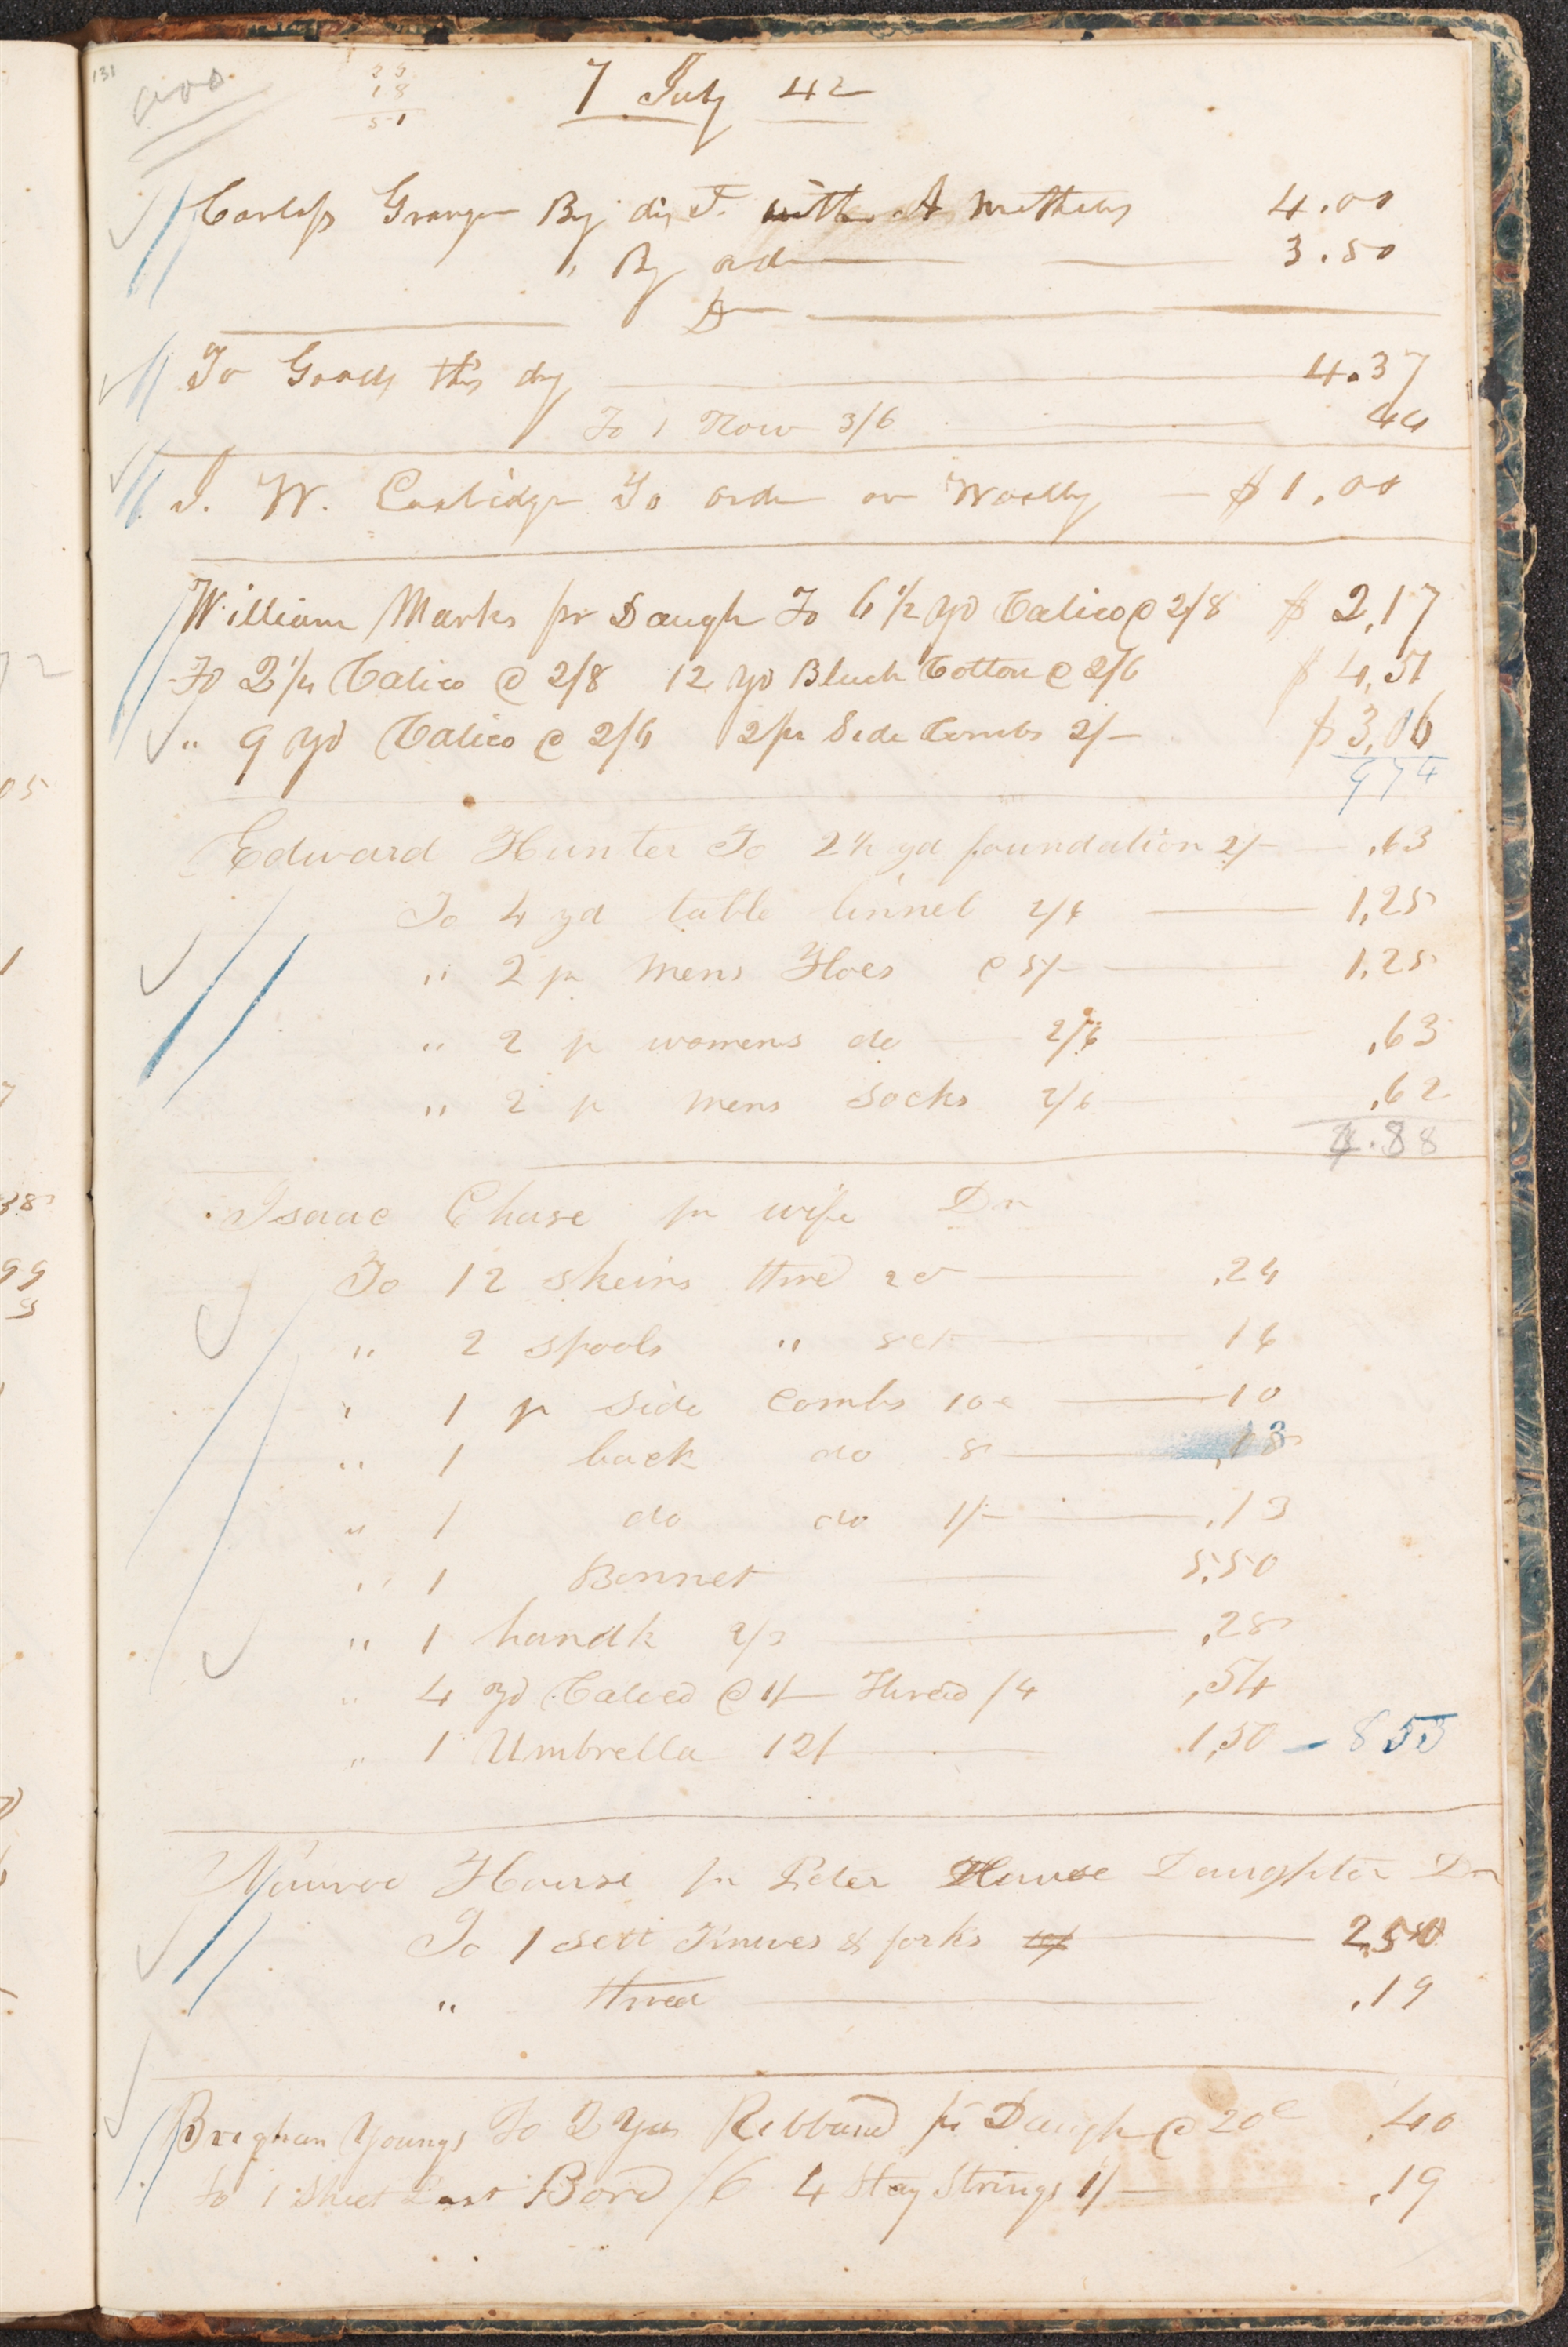 131
25
18
51
7 July 42
Carlos Granger By dis T. with A Mathews 4.00
" By order 3.50
Dr
To Goods this day 4.37
To 1 3/6 44
J. W. Coolidge To order on Woolly $1.00
William Marks pr Daugh To 6 1/2 yd Calico @ 2/8 $2,17
To 2 1/4 Calico @ 2/8 12 yd Bluch Cotton @ 2/6 $4,51
" 9 yd Calico @ 2/6 2 pr Side Combs 2/- $3,06
974
Edward Hunter To 2 1/2 yd foundation 2/- .63
To 4 yd table linnel 2/6 1,25
" 2 pr mens Hoes @ 5/- 1,25
" 2 p womens do 2/6 ,63
" 2 p mens socks 2/6 ,62
4.38
Isaac Chase pr wife Dr
To 12 skeins thred 2c .24
" 2 spools " 8ct 16
" 1 p side combs 10c 10
" 1 back do 8 ,18
" 1 do do 1/- .13
" 1 Bonnet 5,50
" 1 handk 2/3 ,28
" 4 yd Calico @ 1/- Thread /4 ,54
" 1 Umbrella 12/ 1,50 - 853
House pr Peter House Daughter Dr
To 1 sett knives & forks 2,50
" thred .19
Brighan Youngs To 2 Yds Ribband pr Daugh @ 20c .40
To 1 Sheet Past Bord /6 4 Stay Strings 1/- .19